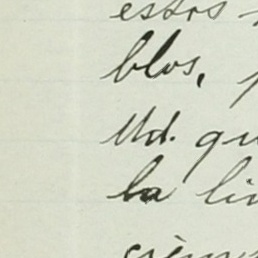 estos
blos,
Ud. qu
la li